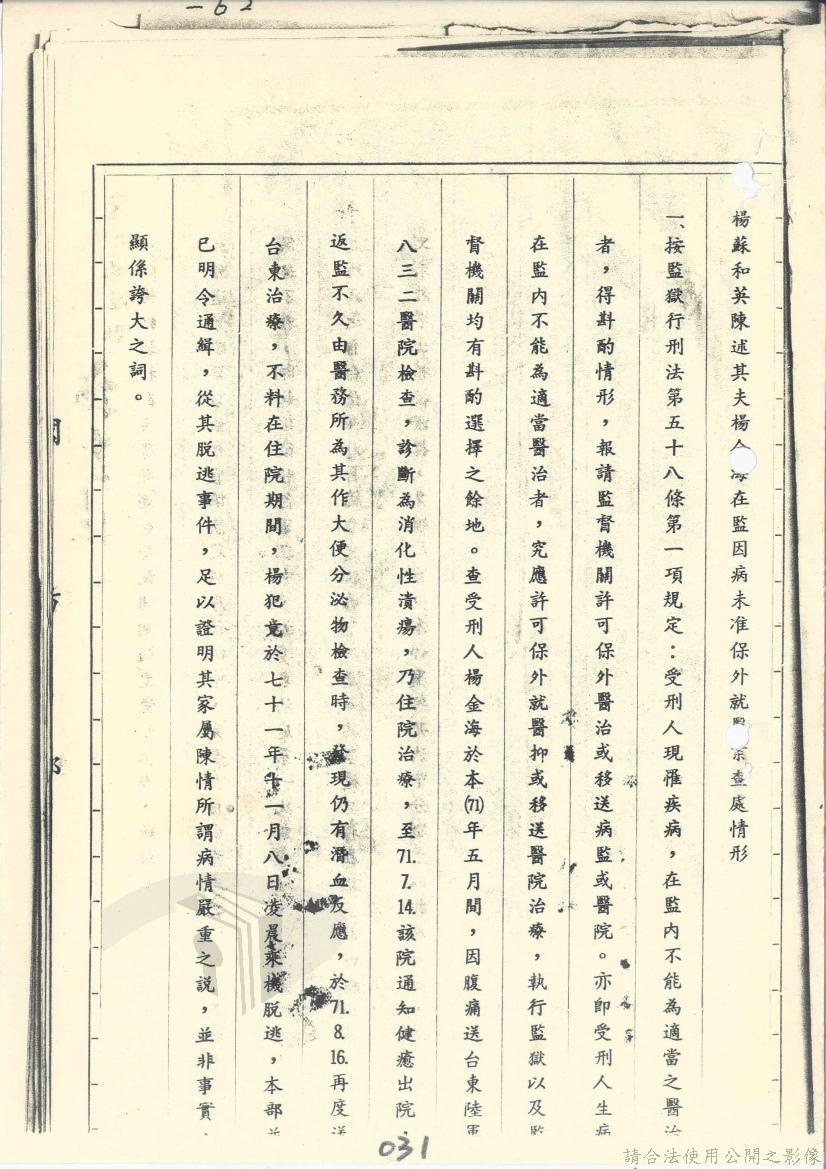 一62
楊蘇和英陳述其夫楊金海在監因病未准保外就醫查處情形
一、按監獄行刑法第五十八條第一項規定：受刑人現罹疾病，在監內不能為適當之醫治
者，得斟酌情形，報請監督機關許可保外醫治或移送病監或醫院。亦即受刑人生病
在監內不能為適當醫治者，究應許可保外就醫抑或移送醫院治療，執行監獄以及監
督機關均有斟酌選擇之餘地。查受刑人楊金海於本(71)年五月間，因腹痛送台東陸軍
八三二醫院檢查，診斷為消化性潰瘍，乃住院治療，至71.7.14.該院通知健癒出院
返監不久由醫務所為其作大便分泌物檢查時，發現仍有潛血反應，於71.8.16.再度送
台東治療，不料在住院期間，楊犯竟於七十一年十一月八日凌晨乘機脫逃，本部並
已明令通緝，從其脫逃事件，足以證明其家屬陳情所謂病情嚴重之說，並非事實，
顯係誇大之詞。
031
請合法使用公開之影像